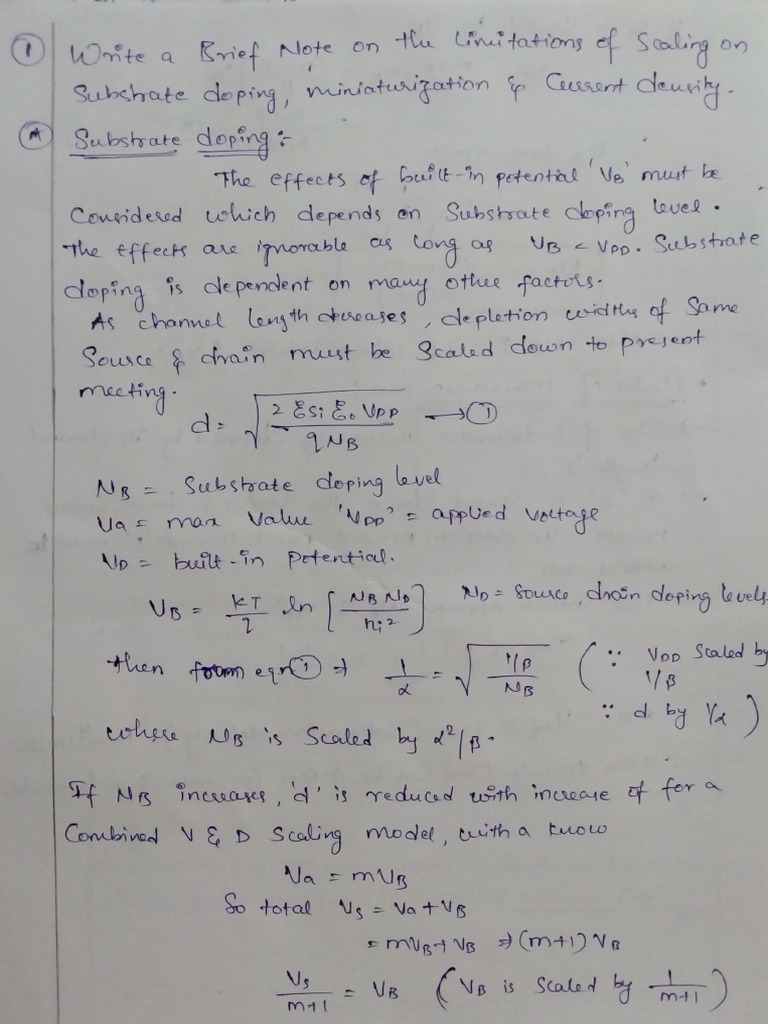 1 Write a Brief Note on the limitations of Scaling on
Substrate doping, miniaturization & Current density.
A Substrate doping :-
The effects of built-in potential 'VB' must be
Considered which depends on Substrate doping level.
The effects are ignorable as long as VB < VDD. Substrate
doping is dependent on many other factors.
As channel length decreases, depletion widths of Same
Source & drain must be Scaled down to present
meeting.
d = √(2 ξsi ξo VDD / q NB) → ①
NB = Substrate doping level
Va = max value 'VDD' = applied voltage
VD = built-in potential.
VB = KT/q ln [NB ND / ni²] ND = Source, drain doping levels
then from eqn ① ⇒ 1/α = √((1/β) / NB) (∵ VDD Scaled by
1/β
∵ d by 1/α)
where NB is Scaled by α²/β.
If NB increases, 'd' is reduced with increase of for a
Combined V & D Scaling model, with a know
Va = mVB
So total Vs = Va + VB
= mVB + VB ⇒ (m+1) VB
Vs/m+1 = VB (VB is Scaled by 1/m+1)